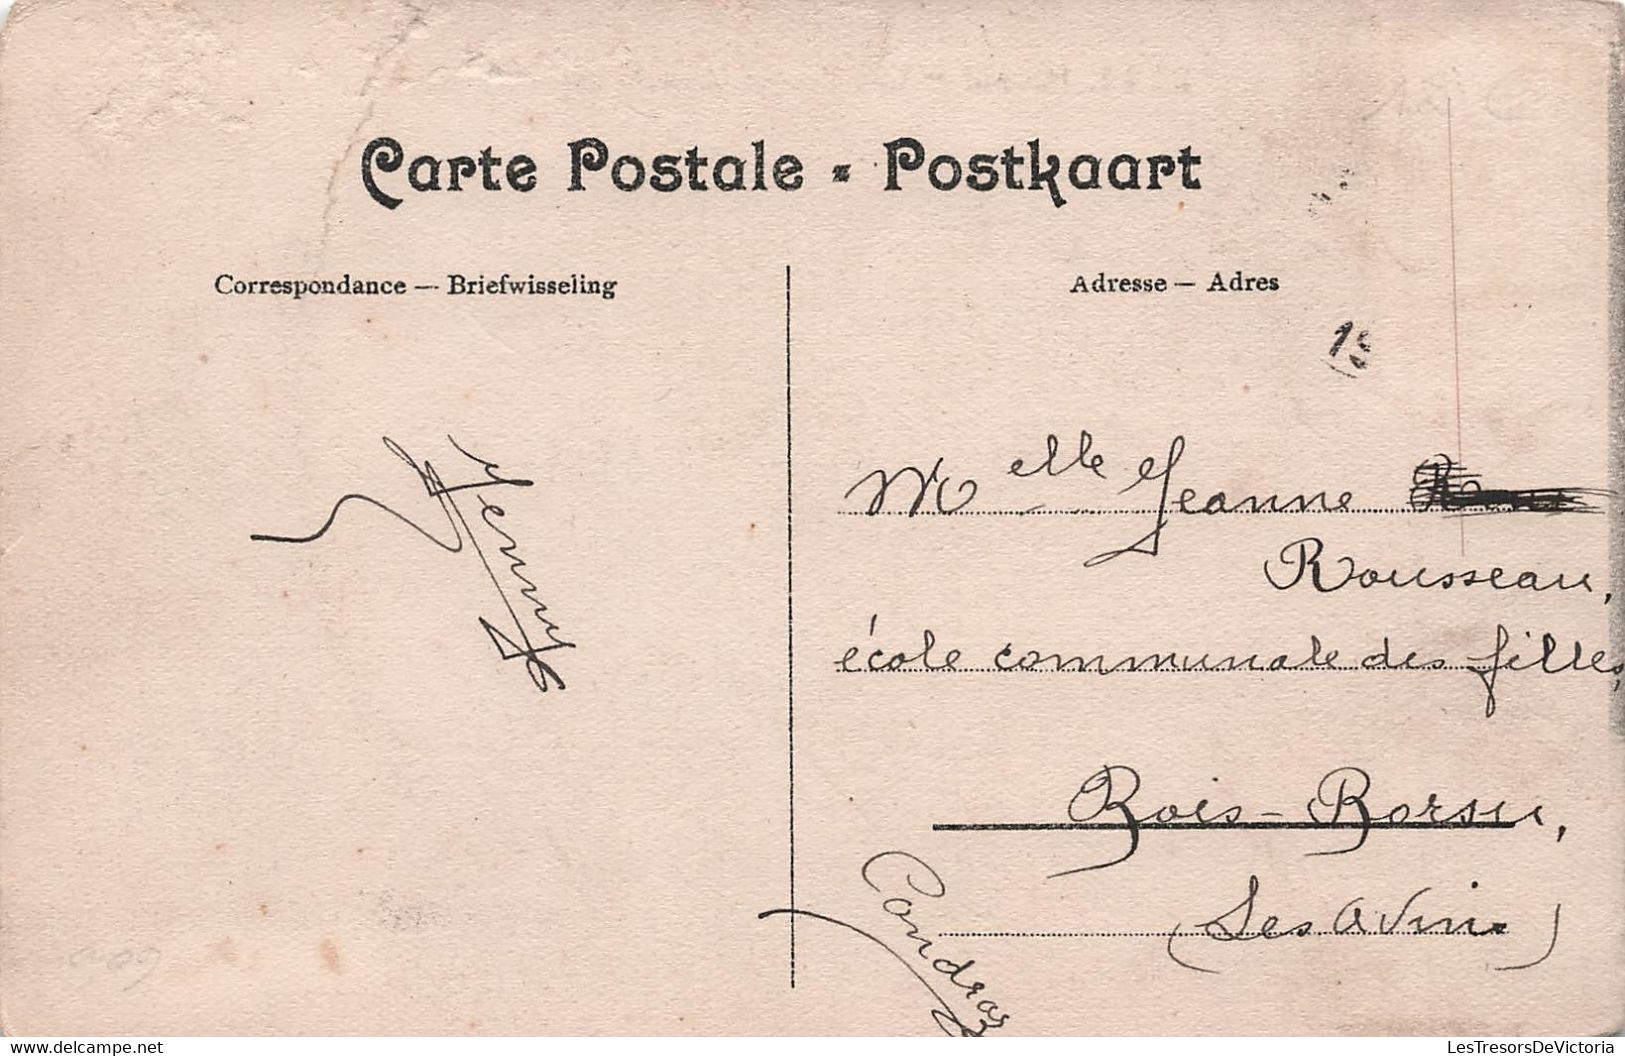 Carte Postale - Postkaart
Correspondance — Briefwisseling
Adresse — Adres
Jenny
Melle Jeanne
Rousseau,
école communale des filles,
Bois-Borsu,
(Les Avins)
Condroz
delcampe.net
LesTresorsDeVictoria